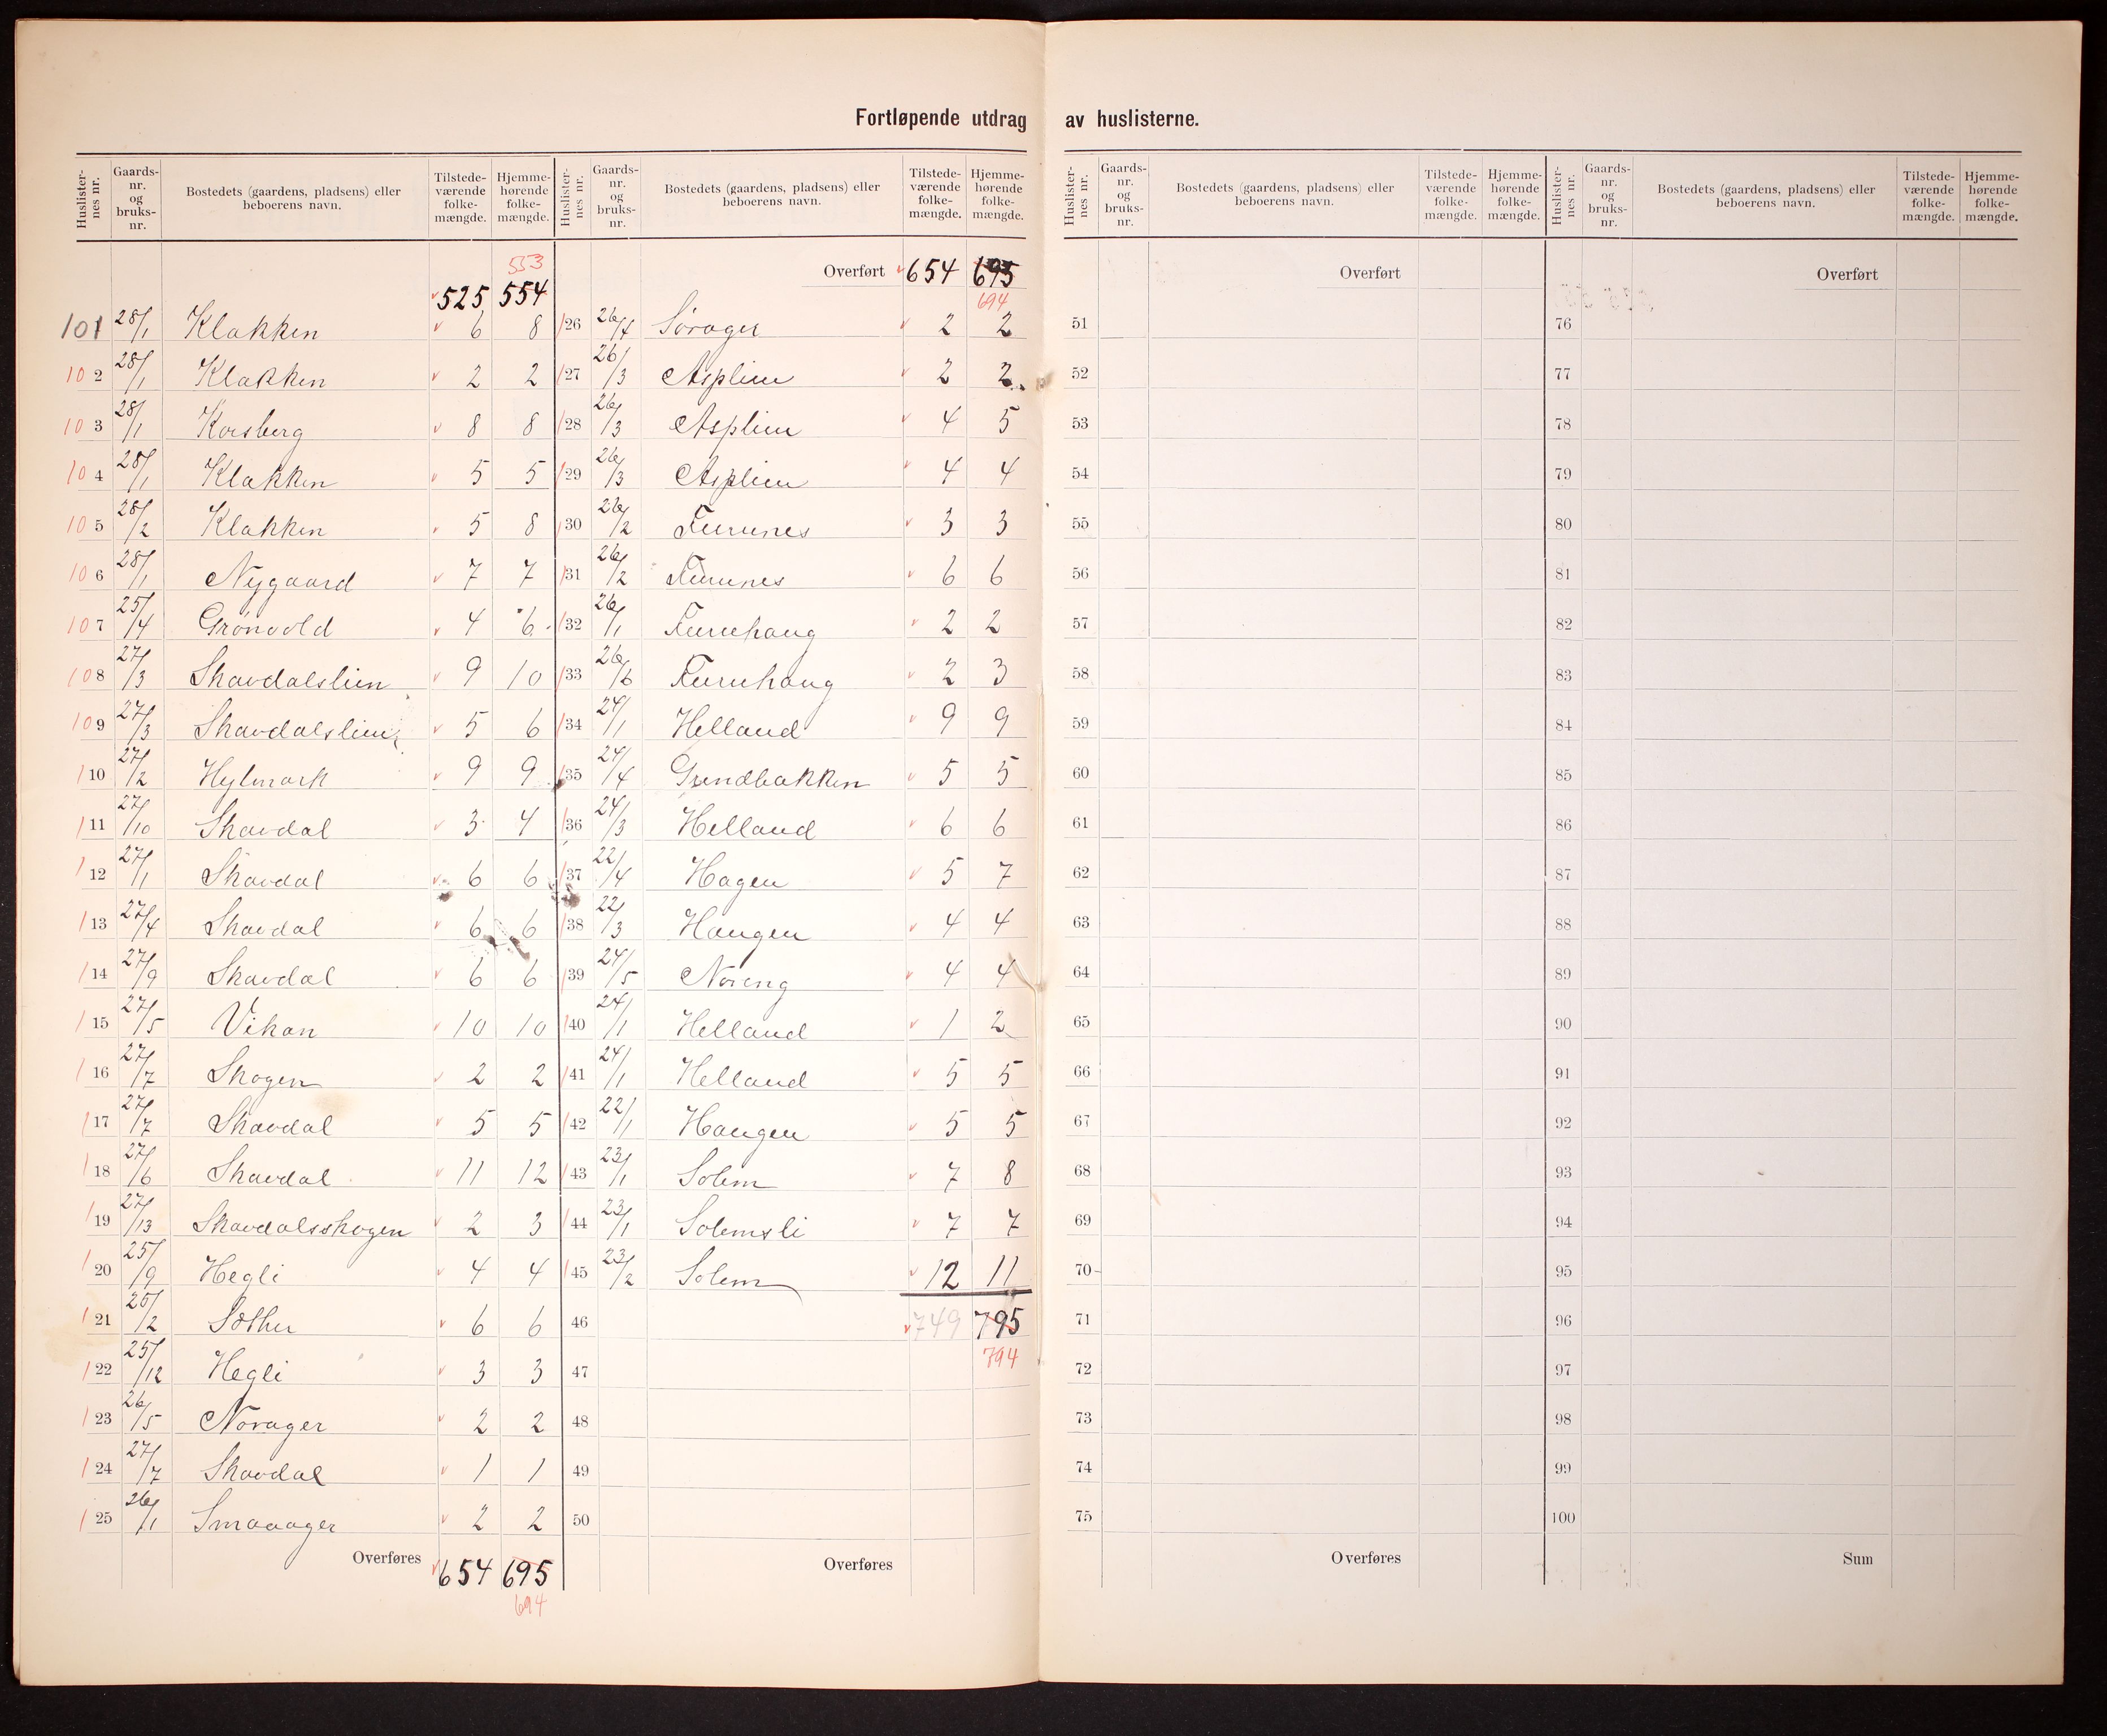 Fortløpende utdrag av huslisterne.
Huslister-nes nr. Gaards-nr. og bruks-nr. Bostedets (gaardens, pladsens) eller beboerens navn. Tilstede-værende folke-mængde. Hjemme-hørende folke-mængde.
553
525 554
101 28/1 Klakken 6 8
102 28/1 Klakken 2 2
103 28/1 Korsberg 8 8
104 28/1 Klakken 5 5
105 28/2 Klakken 5 8
106 28/1 Nygaard 7 7
107 25/4 Grönvold 4 6
108 27/3 Skavdalslien 9 10
109 27/3 Skavdalslien 5 6
110 27/2 Hylmark 9 9
111 27/10 Skavdal 3 4
112 27/1 Skavdal 6 6
113 27/4 Skavdal 6 6
114 27/9 Skavdal 6 6
115 27/5 Vikan 10 10
116 27/7 Skogen 2 2
117 27/7 Skavdal 5 5
118 27/6 Skavdal 11 12
119 27/13 Skavdalsskogen 2 3
120 25/9 Hegli 4 4
121 /2 Sæther 6 6
122 25/12 Hegli 3 3
123 26/5 Norager 2 2
124 27/7 Skavdal 1 1
125 26/1 Smaaager 2 2
Overføres 654 695
694
Huslister-nes nr. Gaards-nr. og bruks-nr. Bostedets (gaardens, pladsens) eller beboerens navn. Tilstede-værende folke-mængde. Hjemme-hørende folke-mængde.
Overført 654 695
694
126 26/4 Sörager 2 2
127 26/3 Asplien 2 2
128 26/3 Asplien 4 5
129 26/3 Asplien 4 4
130 26/2 Furunes 3 3
131 26/2 Furunes 6 6
132 26/1 Furuhaug 2 2
133 26/6 Furuhaug 2 3
134 24/1 Helland 9 9
135 24/4 Grindbakken 5 5
136 24/3 Helland 6 6
137 22/4 Hagen 5 7
138 22/3 Haugen 4 4
139 24/5 Noreng 4 4
140 24/1 Helland 1 2
141 24/1 Helland 5 5
142 22/1 Haugen 5 5
143 23/1 Solem 7 8
144 23/1 Solemsli 7 7
145 23/2 Solem 12 11
46 749 795
794
47
48
49
50
Overføres
Huslister-nes nr. Gaards-nr. og bruks-nr. Bostedets (gaardens, pladsens) eller beboerens navn. Tilstede-værende folke-mængde. Hjemme-hørende folke-mængde.
Overført
51
52
53
54
55
56
57
58
59
60
61
62
63
64
65
66
67
68
69
70
71
72
73
74
75
Overføres
Huslister-nes nr. Gaards-nr. og bruks-nr. Bostedets (gaardens, pladsens) eller beboerens navn. Tilstede-værende folke-mængde. Hjemme-hørende folke-mængde.
Overført
76
77
78
79
80
81
82
83
84
85
86
87
88
89
90
91
92
93
94
95
96
97
98
99
100
Sum